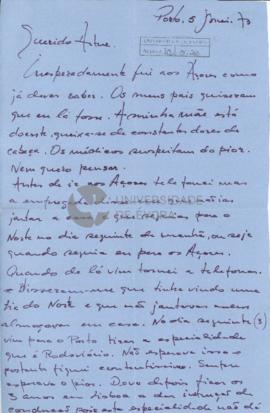 Porto, 5 Junei. 73
Querido Artur.
Inesperadamente fui aos Açores como
já deves saber. Os meus pais quiseram
que eu la fosse. A minha mãe está
doente, queixa-se de constantes dores de
cabeça. Os médicos suspeitam do pior.
Nem quero pensar.
Antes de ir aos Açores telefonei mas
a empregada
jantar a casa e que seguias para o
Norte no dia seguinte de manhã, ou seja
quando seguia eu para os Açores.
Quando de lá vim tornei a telefonar.
e Disseram-me que tinha vindo uma
tia do Norte e que não jantavam nem
almoçavam em casa. No dia seguinte (3)
vim para o Porto tirar a especialidade
que é Rodoviário. Não esperava isso e
portanto fiquei contentissimo. Sempre
esperava o pior. Devo depois ficar os
3 anos em Lisboa a dar instrução de
condução pois esta especialidade não dá
UNIVERSIDADE